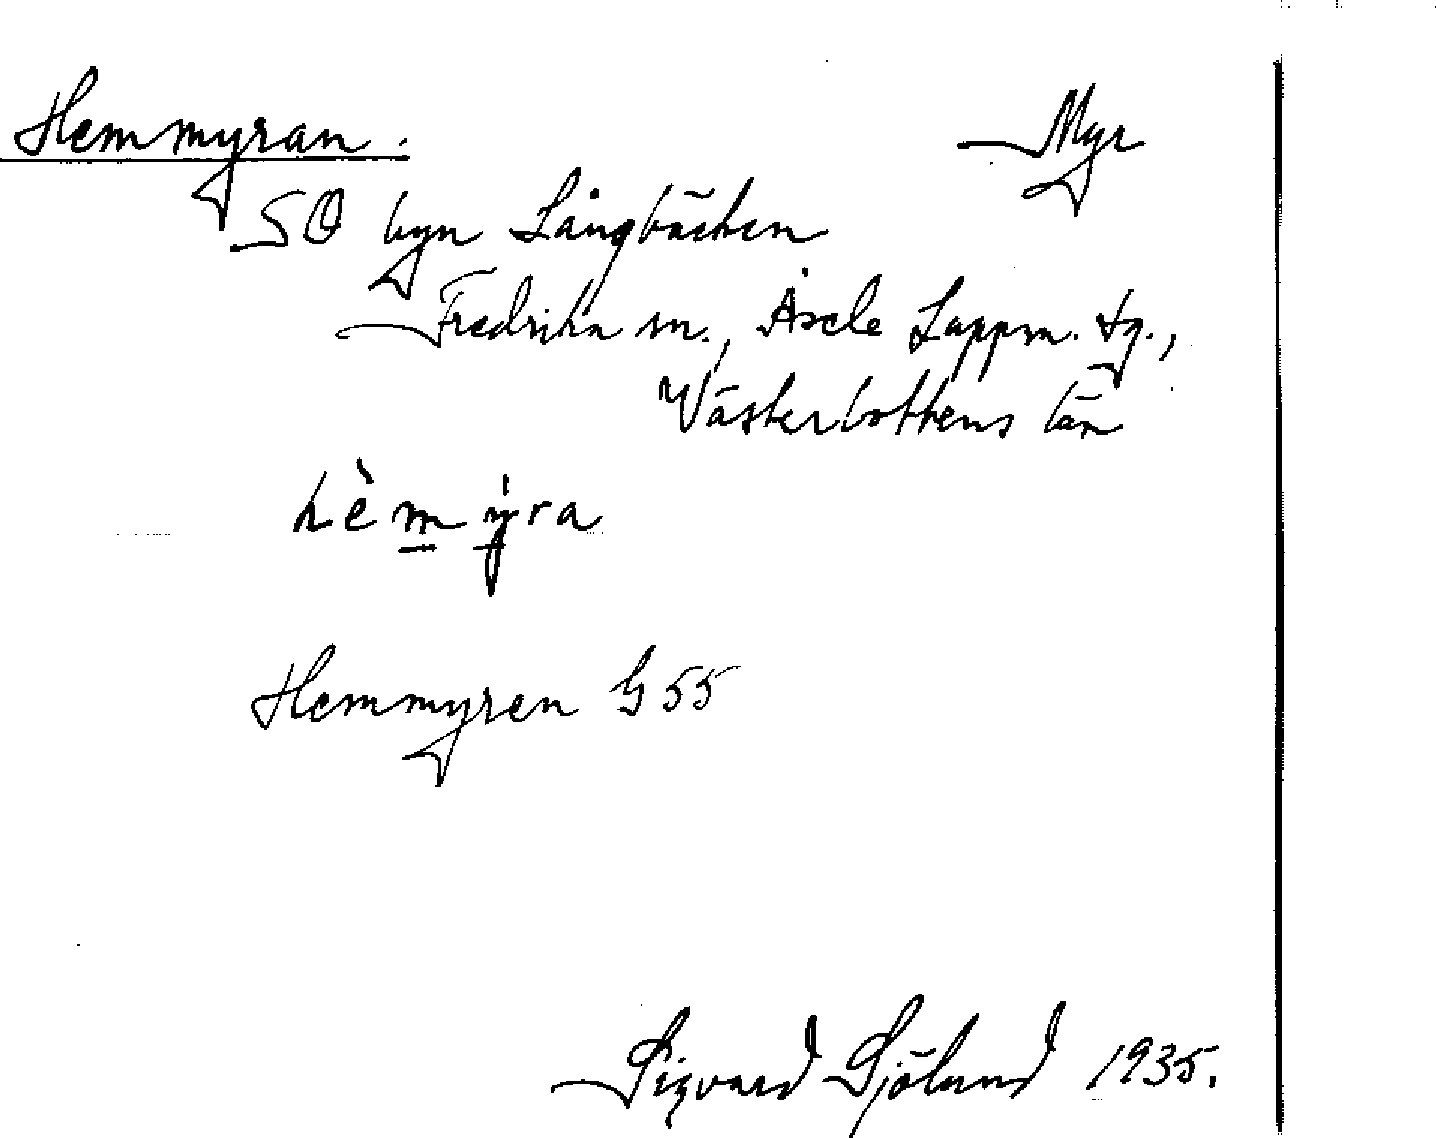 Hemmyran. Myr
SO byn Långbäcken
Fredrika sn., Åsele Lappm. tg.,
Västerbottens län
hèmy̍ra
Hemmyren G 55
Sigvard Sjölund 1935.